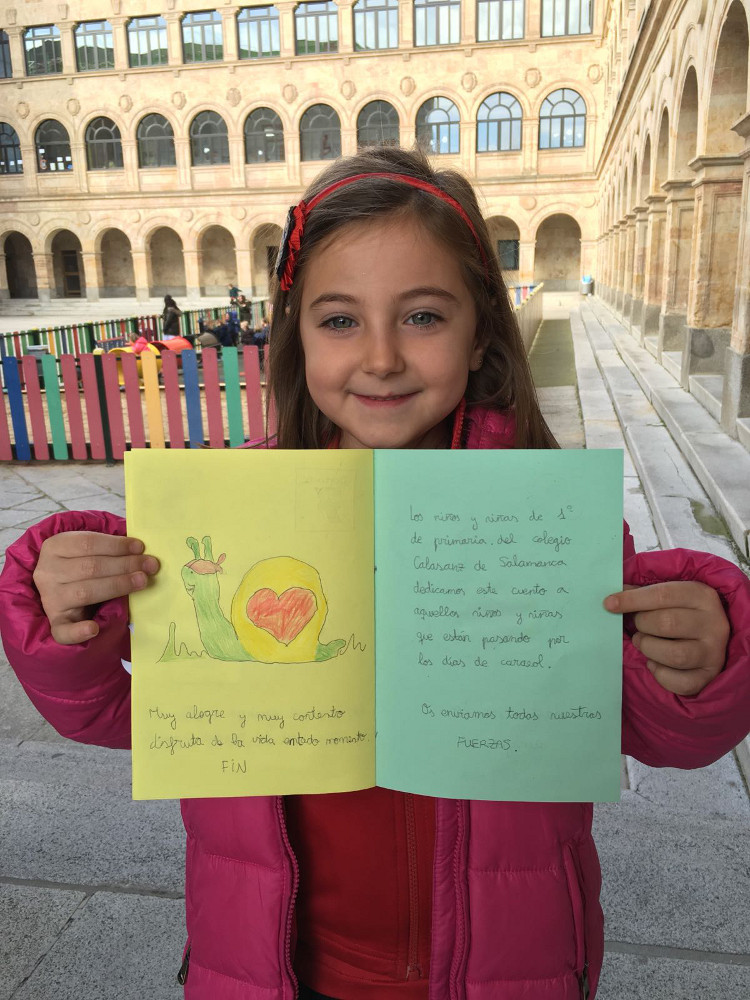 Muy alegre y muy contento
disfruta de la vida entado momento.
FIN
Los niños y niñas de 1º
de primaria. del colegio
Calasanz de Salamanca
dedicamos este cuento a
aquellos niños y niñas
que están pasando por
los días de caracol.
Os enviamos todas nuestras
FUERZAS.